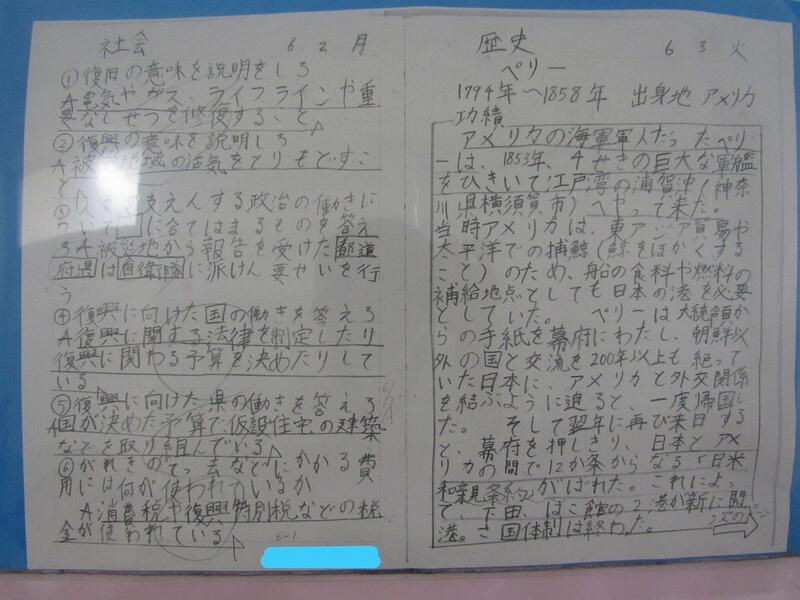 社会 6 2 月
①復旧の意味を説明をしろ
A電気やガス、ライフラインや重
要なしせつを修復すること
②復興の意味を説明しろ
A被 地域の活気をとりもどすこ
と
③ 支えんする政治の働きに
ついて に合てはまるものを答え
ろA被災地から報告を受けた都道
府県は自衛隊に派けん要せいを行
う
④復興に向けた国の働きを答えろ
A復興に関する法律を制定したり
復興に関わる予算を決めたりして
いる
⑤復興に向けた県の働きを答えろ
A国が決めた予算で仮設住宅の建築
などを取り組んでいる
⑥がれきのてっ去などにかかる費
用には何が使われているか
A消費税や復興特別税などの税
金が使われている
6-1
歴史 6 3 火
ペリー
1794年〜1858年 出身地 アメリカ
功績
アメリカの海軍軍人だったペリ
ーは、1853年、4せきの巨大な軍艦
をひきいて江戸湾の浦賀沖(神奈
川県横須賀市)へやって来た。
当時アメリカは、東アジア貿易や
太平洋での捕鯨(鯨をほかくする
こと)のため、船の食料や燃料の
補給地点としても日本の港を必要
としていた。 ペリーは大統領か
らの手紙を幕府にわたし、朝鮮以
外の国と交流を200年以上も絶って
いた日本に、アメリカと外交関係
を結ぶように迫ると、一度帰国し
た。 そして翌年に再び来日する
と、幕府を押しきり、日本とアメ
リカの間で12か条からなる「日米
和親条約」がばれた。これによっ
て、下田、はこ館の2港が新に開
港。さ国体制は終わった。
次の